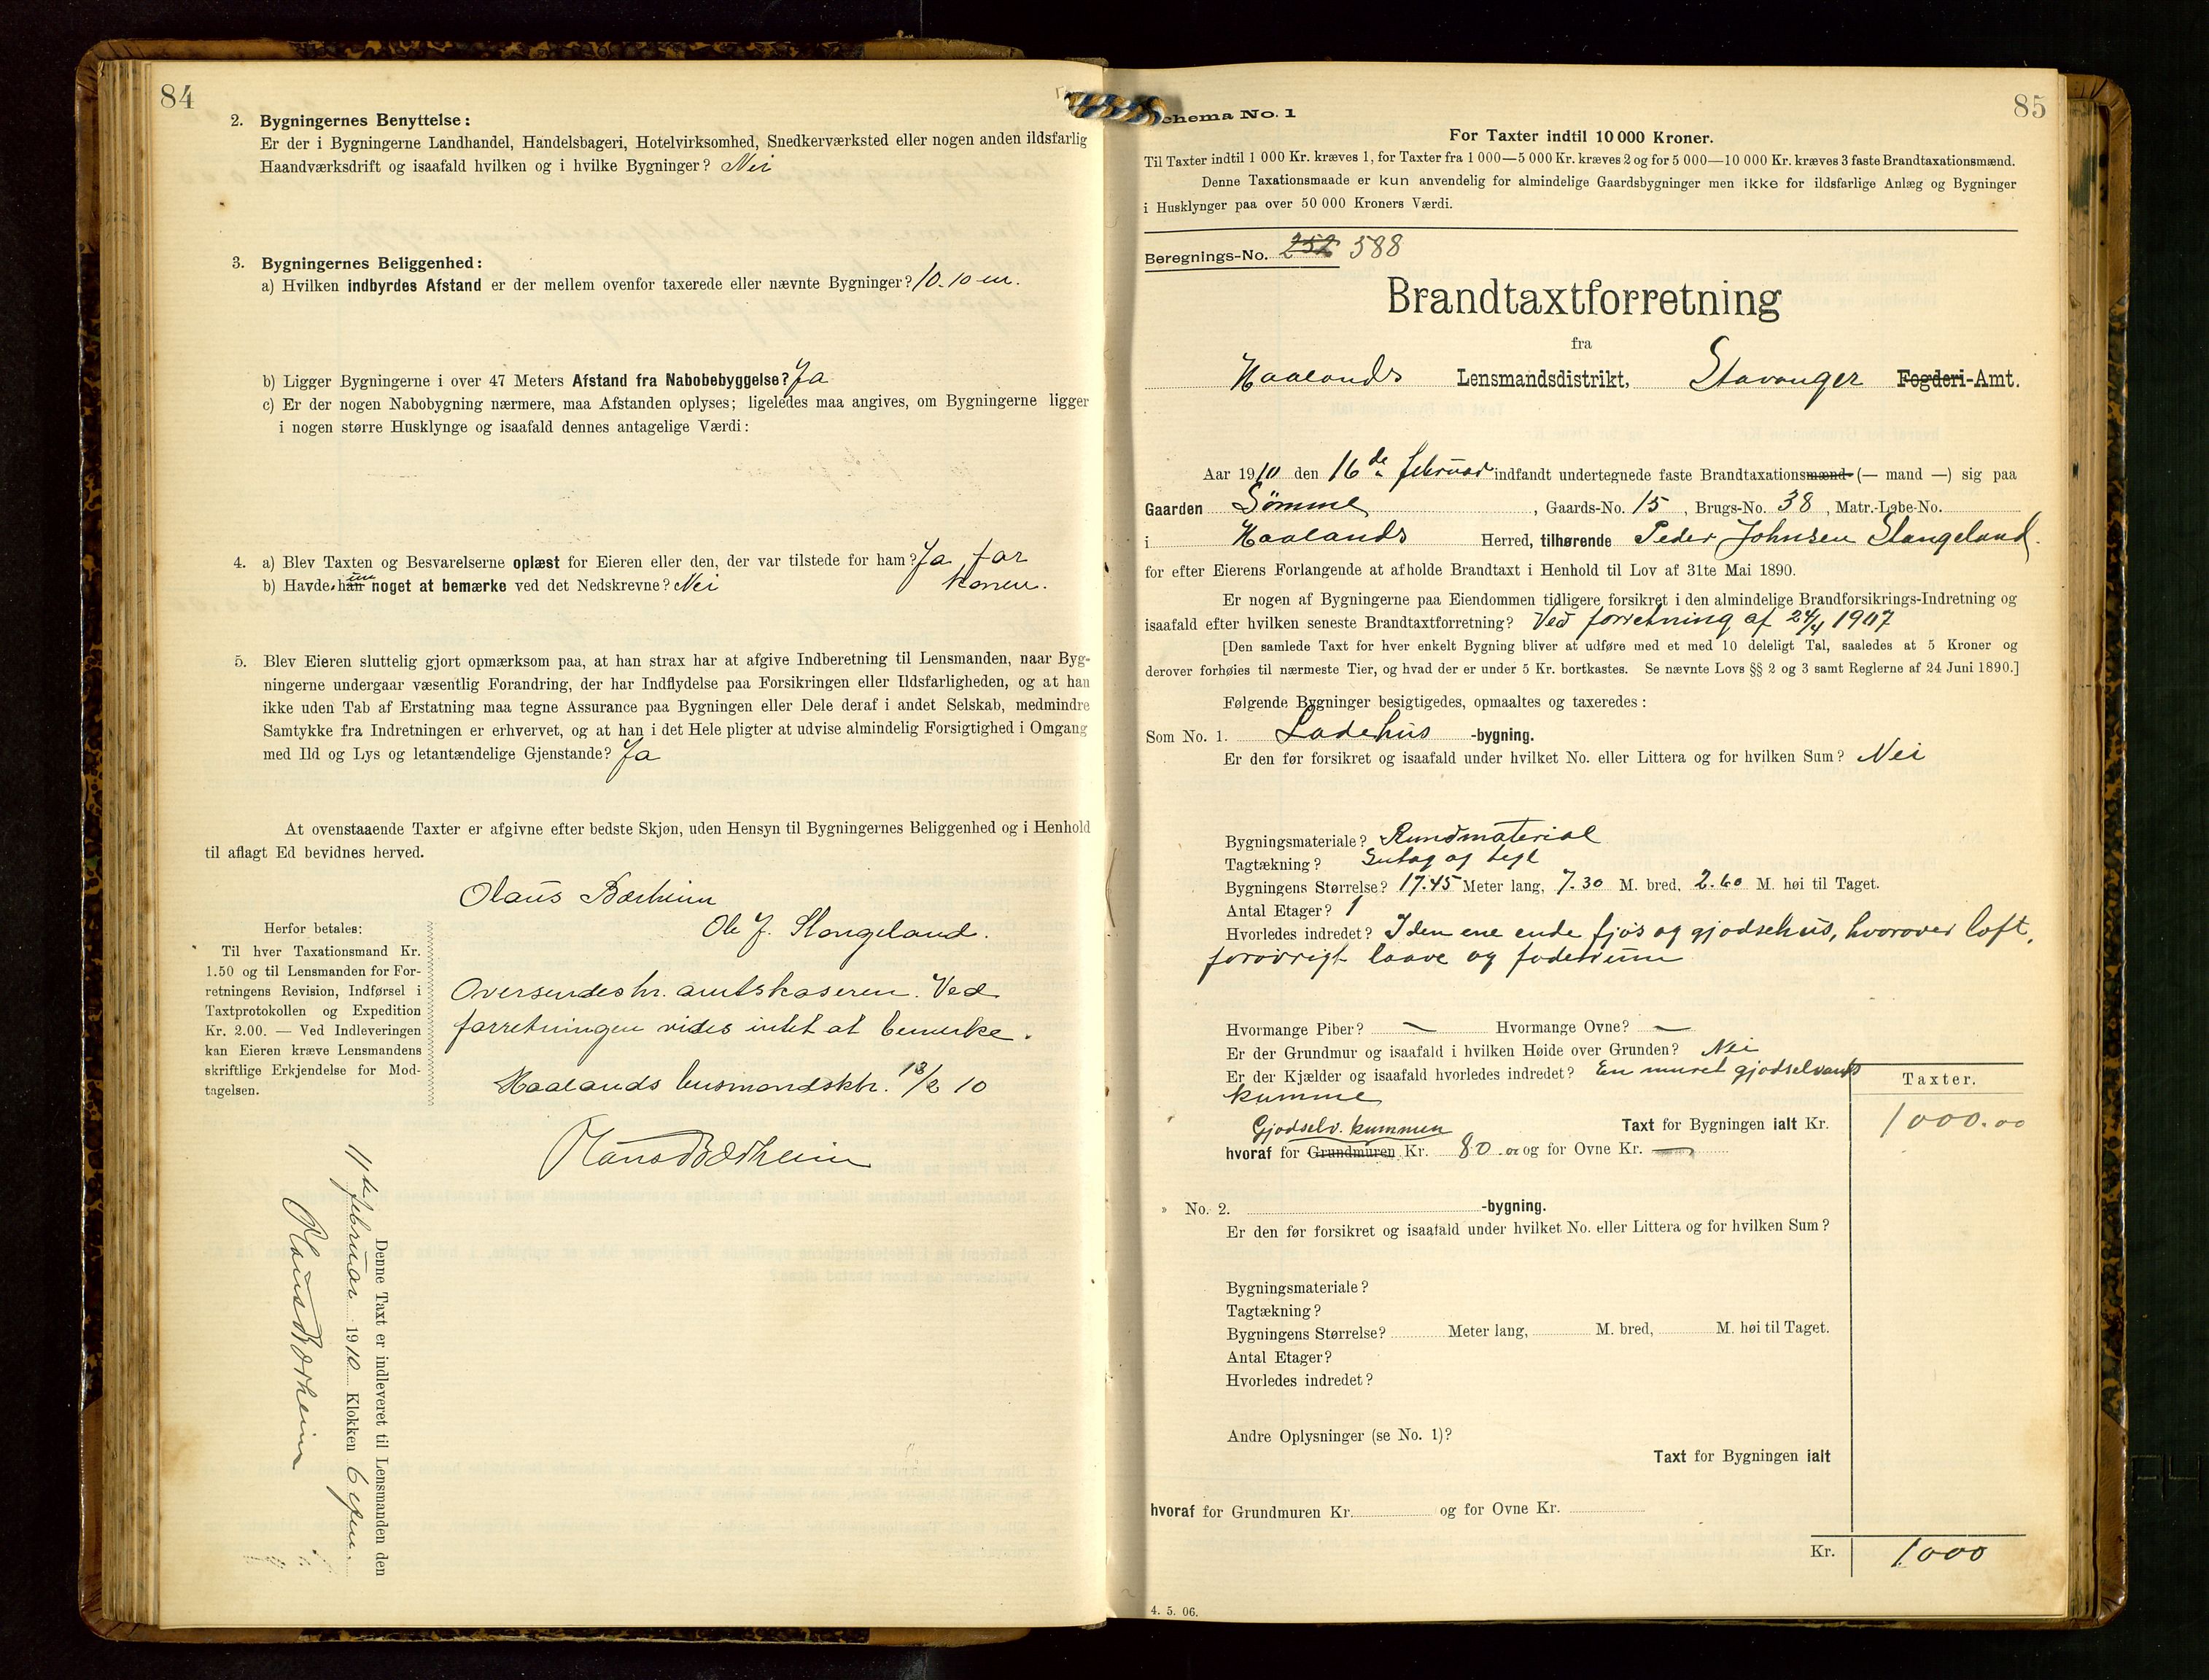 84
2. Bygningernes Benyttelse:
Er der i Bygningerne Landhandel, Handelsbageri, Hotelvirksomhed, Snedkerværksted eller nogen anden ildsfarlig
Haandværksdrift og isaafald hvilken og i hvilke Bygninger? Nei
3. Bygningernes Beliggenhed:
a) Hvilken indbyrdes Afstand er der mellem ovenfor taxerede eller nævnte Bygninger? 10.10 m.
b) Ligger Bygningerne i over 47 Meters Afstand fra Nabobebyggelse? Ja
c) Er der nogen Nabobygning nærmere, maa Afstanden oplyses; ligeledes maa angives, om Bygningerne ligger
i nogen større Husklynge og isaafald dennes antagelige Værdi:
4. a) Blev Taxten og Besvarelserne oplæst for Eieren eller den, der var tilstede for ham? Ja for
konen.
b) Havde han noget at bemærke ved det Nedskrevne? Nei
5. Blev Eieren sluttelig gjort opmærksom paa, at han strax har at afgive Indberetning til Lensmanden, naar Byg-
ningerne undergaar væsentlig Forandring, der har Indflydelse paa Forsikringen eller Ildsfarligheden, og at han
ikke uden Tab af Erstatning maa tegne Assurance paa Bygningen eller Dele deraf i andet Selskab, medmindre
Samtykke fra Indretningen er erhvervet, og at han i det Hele pligter at udvise almindelig Forsigtighed i Omgang
med Ild og Lys og letantændelige Gjenstande? Ja
At ovenstaaende Taxter er afgivne efter bedste Skjøn, uden Hensyn til Bygningernes Beliggenhed og i Henhold
til aflagt Ed bevidnes herved.
Olaus Bærheim
Ole J. Stangeland.
Herfor betales:
Til hver Taxationsmand Kr.
1.50 og til Lensmanden for For-
retningens Revision, Indførsel i
Taxtprotokollen og Expedition
Kr. 2.00. — Ved Indleveringen
kan Eieren kræve Lensmandens
skriftlige Erkjendelse for Mod-
tagelsen.
Oversendes hr. amtskaseren. Ved
forretningen vides intet at bemerke.
Haalands lensmandsktr. 18/2 10
Olaus Bærheim
Denne Taxt er indleveret til Lensmanden den
17de februar 1910 Klokken 6 efm.
Olaus Bærheim
85
chema No. 1
For Taxter indtil 10 000 Kroner.
Til Taxter indtil 1 000 Kr. kræves 1, for Taxter fra 1 000—5 000 Kr. kræves 2 og for 5 000—10 000 Kr. kræves 3 faste Brandtaxationsmænd.
Denne Taxationsmaade er kun anvendelig for almindelige Gaardsbygninger men ikke for ildsfarlige Anlæg og Bygninger
i Husklynger paa over 50 000 Kroners Værdi.
Beregnings-No. 252 588
Brandtaxtforretning
fra
Haalands Lensmandsdistrikt, Stavanger Fogderi-Amt.
Aar 1910 den 16de februar indfandt undertegnede faste Brandtaxationsmænd (— mand —) sig paa
Gaarden Sømme, Gaards-No. 15, Brugs-No. 38, Matr.-Løbe-No.
i Haalands Herred, tilhørende Peder Johnsen Stangeland.
for efter Eierens Forlangende at afholde Brandtaxt i Henhold til Lov af 31te Mai 1890.
Er nogen af Bygningerne paa Eiendommen tidligere forsikret i den almindelige Brandforsikrings-Indretning og
isaafald efter hvilken seneste Brandtaxtforretning? Ved forretning af 24/4 1907
[Den samlede Taxt for hver enkelt Bygning bliver at udføre med et med 10 deleligt Tal, saaledes at 5 Kroner og
derover forhøies til nærmeste Tier, og hvad der er under 5 Kr. bortkastes. Se nævnte Lovs §§ 2 og 3 samt Reglerne af 24 Juni 1890.]
Følgende Bygninger besigtigedes, opmaaltes og taxeredes:
Som No. 1. Ladehus -bygning.
Er den før forsikret og isaafald under hvilket No. eller Littera og for hvilken Sum? Nei
Bygningsmateriale? Rundmaterial
Tagtækning? Sutag og tegl
Bygningens Størrelse? 17.45 Meter lang, 7.30 M. bred, 2.60 M. høi til Taget.
Antal Etager? 1
Hvorledes indredet? I den ene ende fjøs og gjødsehus, hvorover loft,
forøvrigt laave og foderrum
Hvormange Piber? — Hvormange Ovne? —
Er der Grundmur og isaafald i hvilken Høide over Grunden? Nei
Er der Kjælder og isaafald hvorledes indredet? En muret gjødselvands
kumme
Taxter.
Gjødselv. kummen
Taxt for Bygningen ialt Kr. 1000.00
hvoraf for Grundmuren Kr. 80.00 og for Ovne Kr. —
» No. 2. -bygning.
Er den før forsikret og isaafald under hvilket No. eller Littera og for hvilken Sum?
Bygningsmateriale?
Tagtækning?
Bygningens Størrelse? Meter lang, M. bred, M. høi til Taget.
Antal Etager?
Hvorledes indredet?
Andre Oplysninger (se No. 1)?
Taxt for Bygningen ialt
hvoraf for Grundmuren Kr. og for Ovne Kr.
Kr. 1000
4. 5. 06.